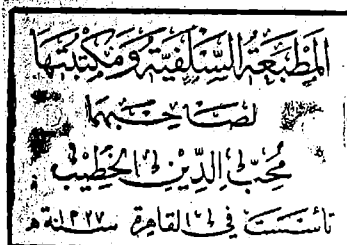 المَطْبَعَةُ السَّلَفِيَّةُ وَمَكْتَبَتُهَا
لصَاحِبهَا
مُحِبّ الدِّين الخَطِيب
تأسست في القاهرة سنة ١٣٢٧ هـ